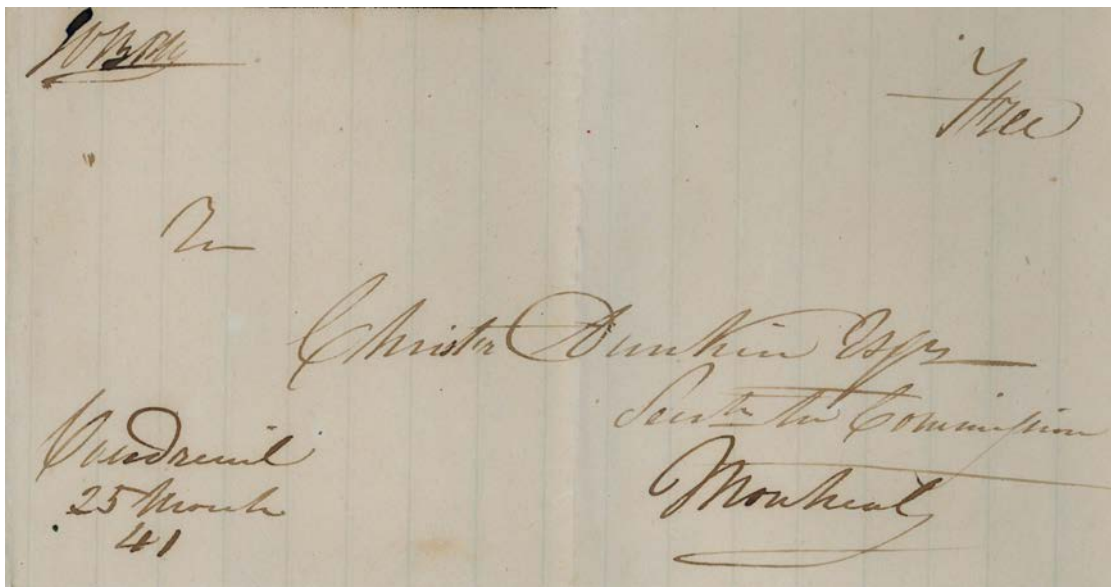 Free
To
Christr Dunkin Esqr
Secrty to the Commission
Montreal
Vaudreuil
25 March
41